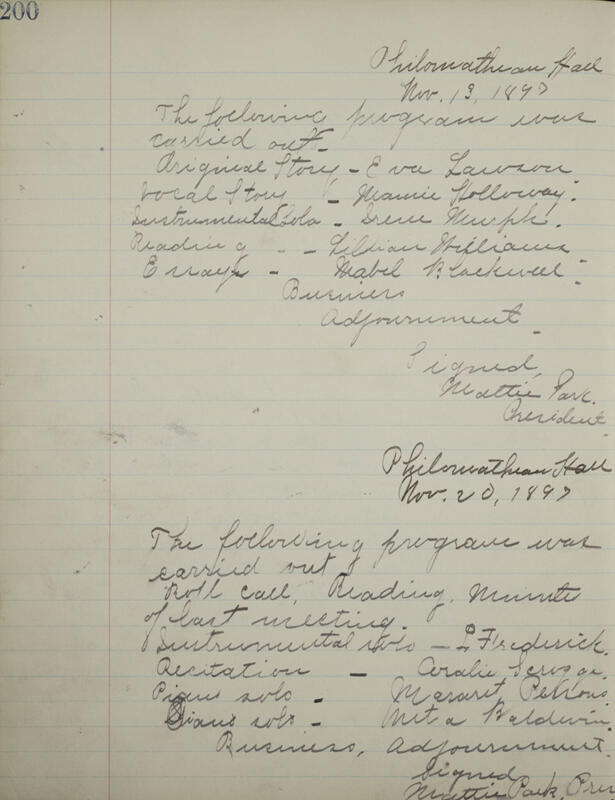 200
Philomathean Hall
Nov. 13, 1897
The following program was
carried out-
Original Story - Eva Lawson
Vocal Story - Mamie Holloway.
Instrumental Solo - Irene Murph.
Reading - - Lillian Williams
Essay - Mabel Blackwell
Business
Adjournment
Signed,
Mattie Park.
President
Philomathean Hall
Nov. 20, 1897
The following program was
carried out
Roll Call, Reading, Minute
of last meeting.
Instrumental solo - L Frederick.
Recitation - Coralie
Piano solo - Margaret
Piano solo - Meta Baldwin.
Business, Adjournment.
Signed
Mattie Park, Pres